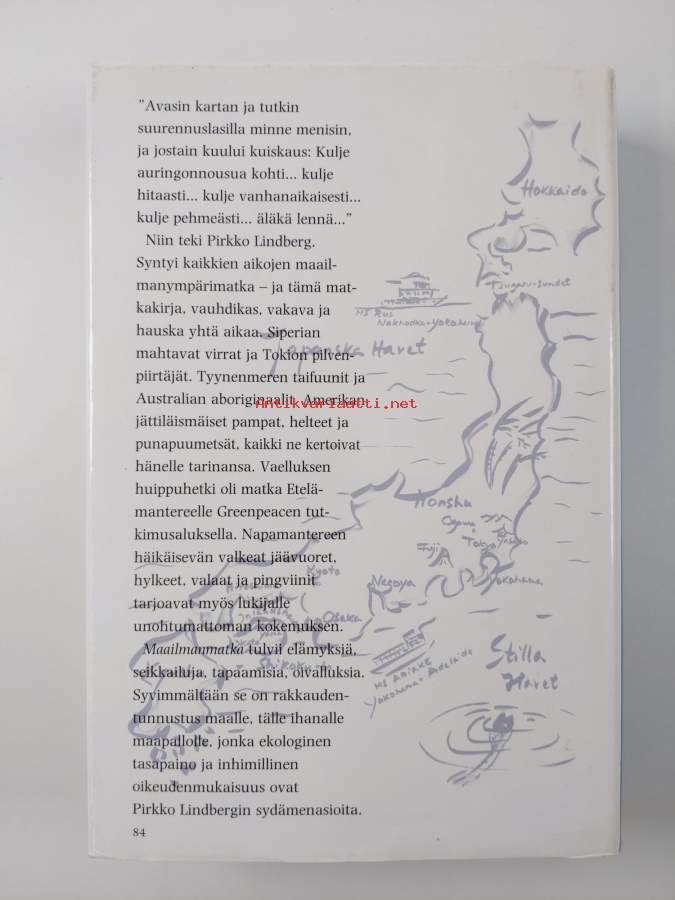 "Avasin kartan ja tutkin
suurennuslasilla minne menisin,
ja jostain kuului kuiskaus: Kulje
auringonnousua kohti... kulje
hitaasti... kulje vanhanaikaisesti...
kulje pehmeästi... äläkä lennä..."
Niin teki Pirkko Lindberg.
Syntyi kaikkien aikojen maail-
manympärimatka – ja tämä mat-
kakirja, vauhdikas, vakava ja
hauska yhtä aikaa. Siperian
mahtavat virrat ja Tokion pilven-
piirtäjät. Tyynenmeren taifuunit ja
Australian aboriginaalit. Amerikan
jättiläismäiset pampat, helteet ja
punapuumetsät, kaikki ne kertoivat
hänelle tarinansa. Vaelluksen
huippuhetki oli matka Etelä-
mantereelle Greenpeacen tut-
kimusaluksella. Napamantereen
häikäisevän valkeat jäävuoret,
hylkeet, valaat ja pingviinit
tarjoavat myös lukijalle
unohtumattoman kokemuksen.
Maailmanmatka tulvii elämyksiä,
seikkailuja, tapaamisia, oivalluksia.
Syvimmältään se on rakkauden-
tunnustus maalle, tälle ihanalle
maapallolle, jonka ekologinen
tasapaino ja inhimillinen
oikeudenmukaisuus ovat
Pirkko Lindbergin sydämenasioita.
84
Antikvariaatti.net
Hokkaido
Tsugaru-sundet
Nakhodka-Yokohama
Japanska Havet
Honsha
Ogawa
Tokyo
Fuji
Yokohama
Nagoya
Kyoto
Osaka
Shikoku
MS ARIAKE
Yokohama - Adelaide
Stilla
Havet